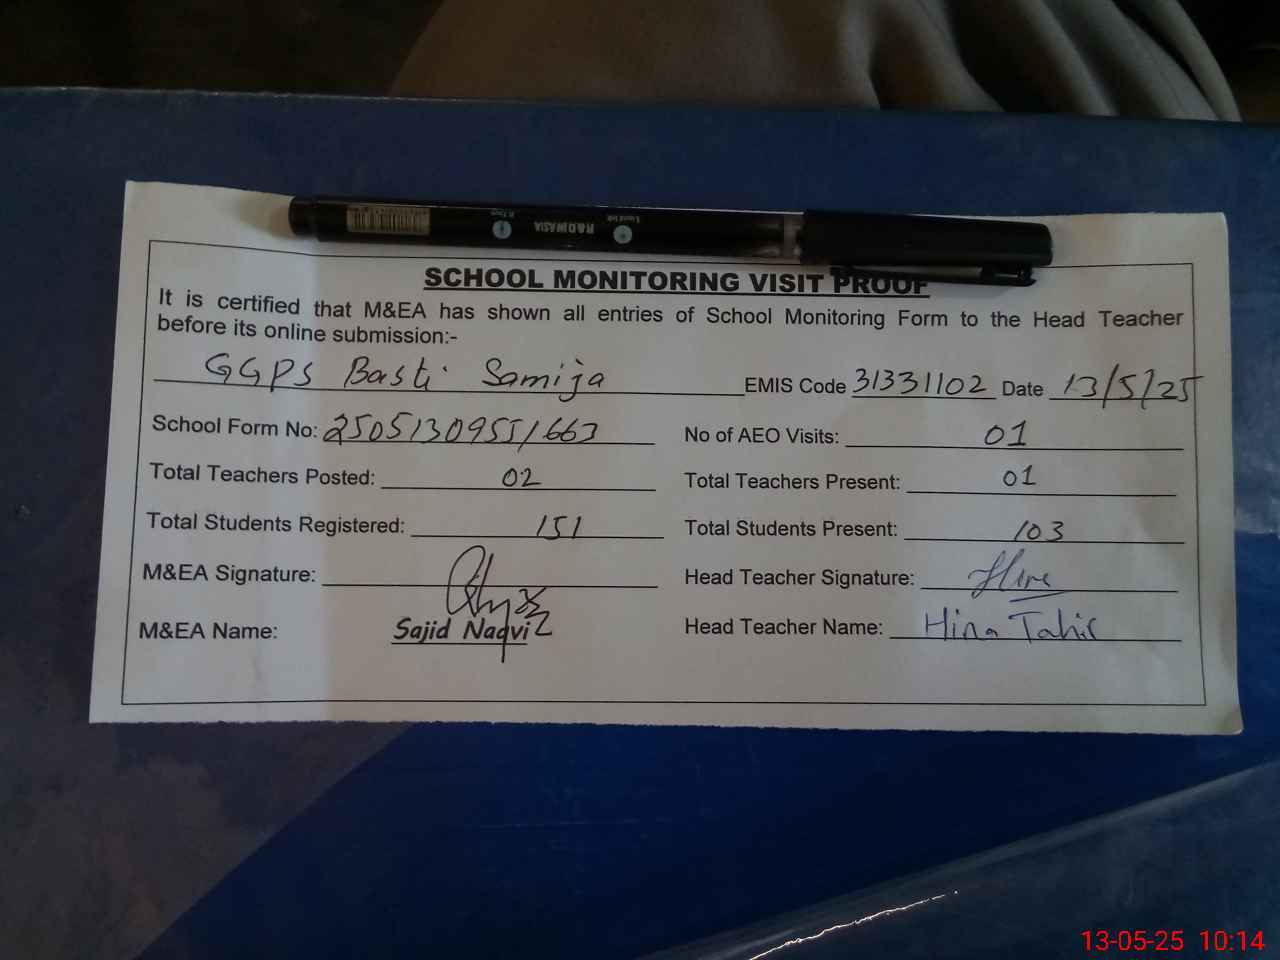 SCHOOL MONITORING VISIT PROOF
It is certified that M&EA has shown all entries of School Monitoring Form to the Head Teacher
before its online submission:-
GGPS Basti Samija EMIS Code 31331102 Date 13/5/25
School Form No: 25051309551663 No of AEO Visits: 01
Total Teachers Posted: 02 Total Teachers Present: 01
Total Students Registered: 151 Total Students Present: 103
M&EA Signature: Head Teacher Signature: Hina
M&EA Name: Sajid Naqvi Head Teacher Name: Hina Tahir
13-05-25 10:14